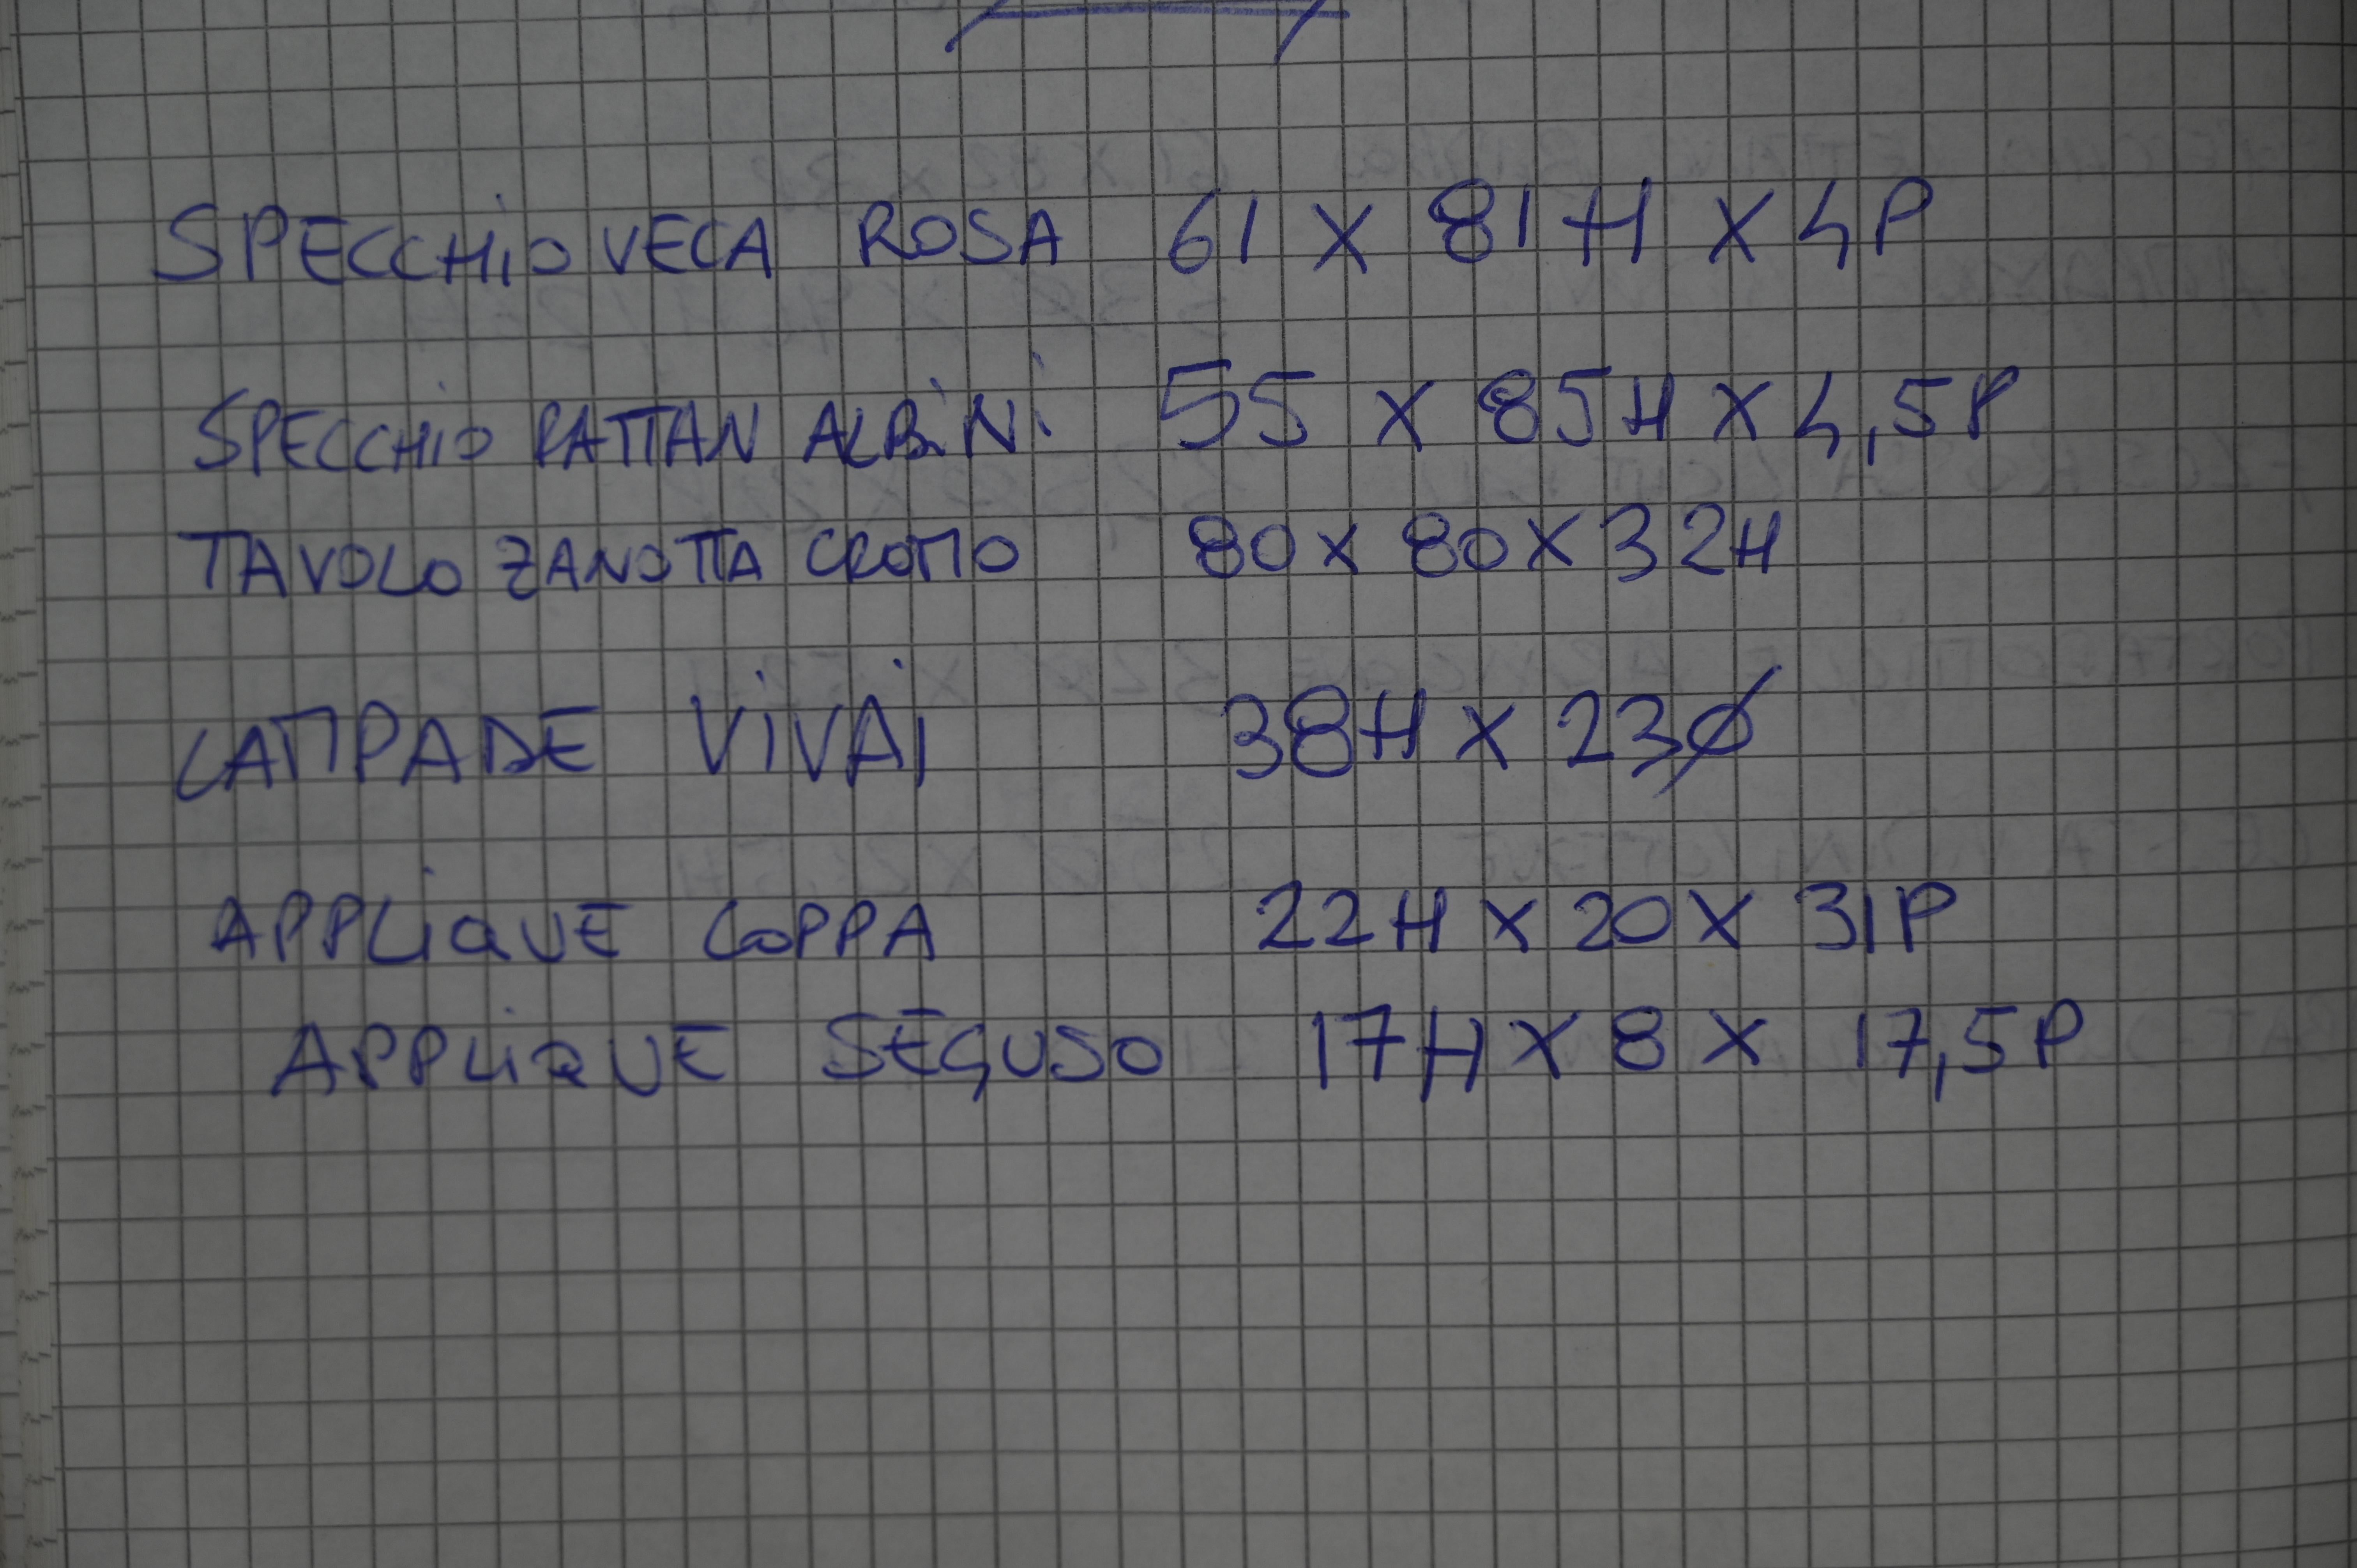 SPECCHIO VECA ROSA 61 X 81H X 4P
SPECCHIO RATTAN ALBINI 55 X 85H X 4,5P
TAVOLO ZANOTTA CROMO 80 X 80 X 32H
LAMPADE VIVAI 38H X 23Ø
APPLIQUE COPPA 22H X 20 X 31P
APPLIQUE SEGUSO 17H X 8 X 17,5P